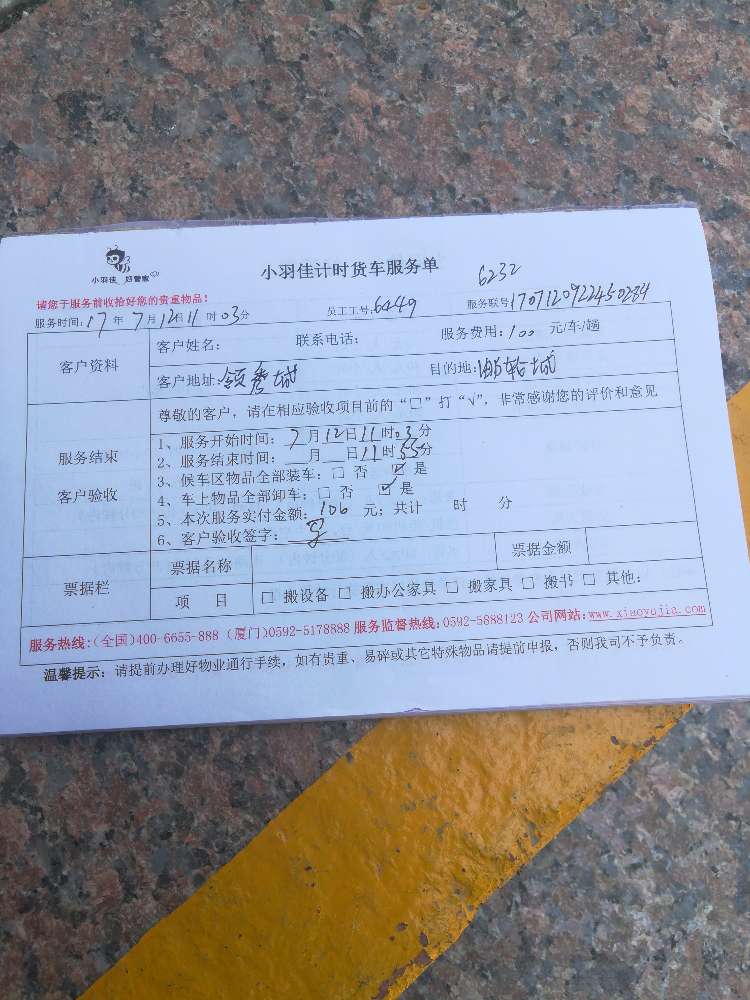 小羽佳 好管家
小羽佳计时货车服务单
6232
请您于服务前收拾好您的贵重物品!
服务时间:17年7月12日11时03分 员工工号:6449 服务联号1707120922450284
客户资料
客户姓名: 联系电话: 服务费用:100 元/车/趟
客户地址:领秀城 目的地:邮轮城
尊敬的客户,请在相应验收项目前的“□”打“√”,非常感谢您的评价和意见
服务结束
客户验收
1、服务开始时间:7月12日11时03分
2、服务结束时间:__月__日11时55分
3、候车区物品全部装车:□ 否 ☑ 是
4、车上物品全部卸车:□ 否 ☑ 是
5、本次服务实付金额:106 元;共计 时 分
6、客户验收签字:
票据栏
票据名称 票据金额
项 目 □ 搬设备 □ 搬办公家具 □ 搬家具 □ 搬书 □ 其他:
服务热线:(全国)400-6655-888 (厦门)0592-5178888 服务监督热线:0592-5888123 公司网站:www.xiaoyujia.com
温馨提示:请提前办理好物业通行手续,如有贵重、易碎或其它特殊物品请提前申报,否则我司不予负责。